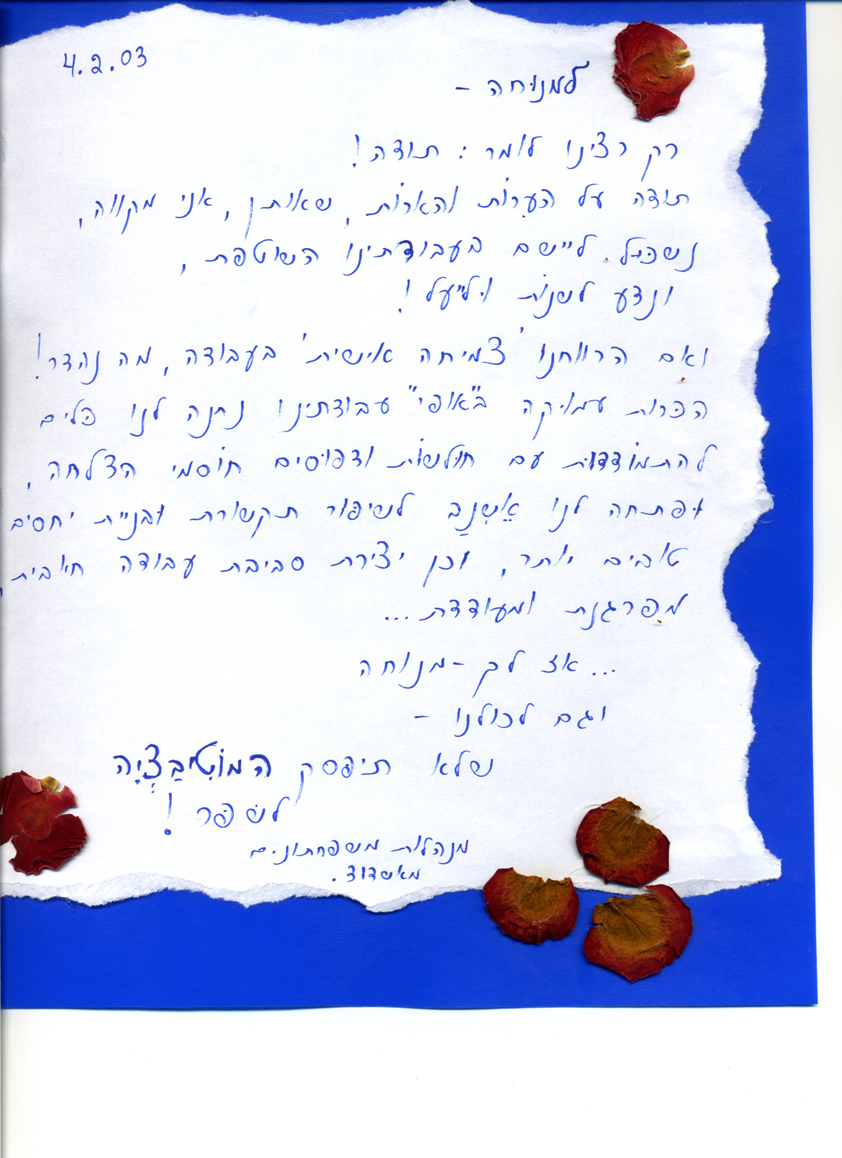 4.2.03
למנוחה -
רק רצינו לומר: תודה!
תודה על הערות והארות, שאותן, אני מקווה,
נשכיל ליישם בעבודתינו השוטפת,
ונדע לשנות ולייעל!
ואם הרווחנו 'צמיחה אישית' בעבודה, מה נהדר!
הכרות עמוקה ב"אופי" עבודתינו נתנה לנו כלים
להתמודדות עם חולשות ודפוסים חוסמי הצלחה,
ופתחה לנו אֶשְׁנָב לשיפור תקשורת ובניית יחסים
טובים יותר, וכן יצירת סביבת עבודה חיובית,
מפרגנת ומעודדת...
...אז לך - מנוחה
וגם לכולנו -
שלא תיפסק המוֹטִיבַצְיָה
לשפר!
מנהלות משפחתונים
מאשדוד.